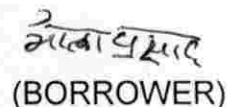 भोला प्रसाद
(BORROWER)